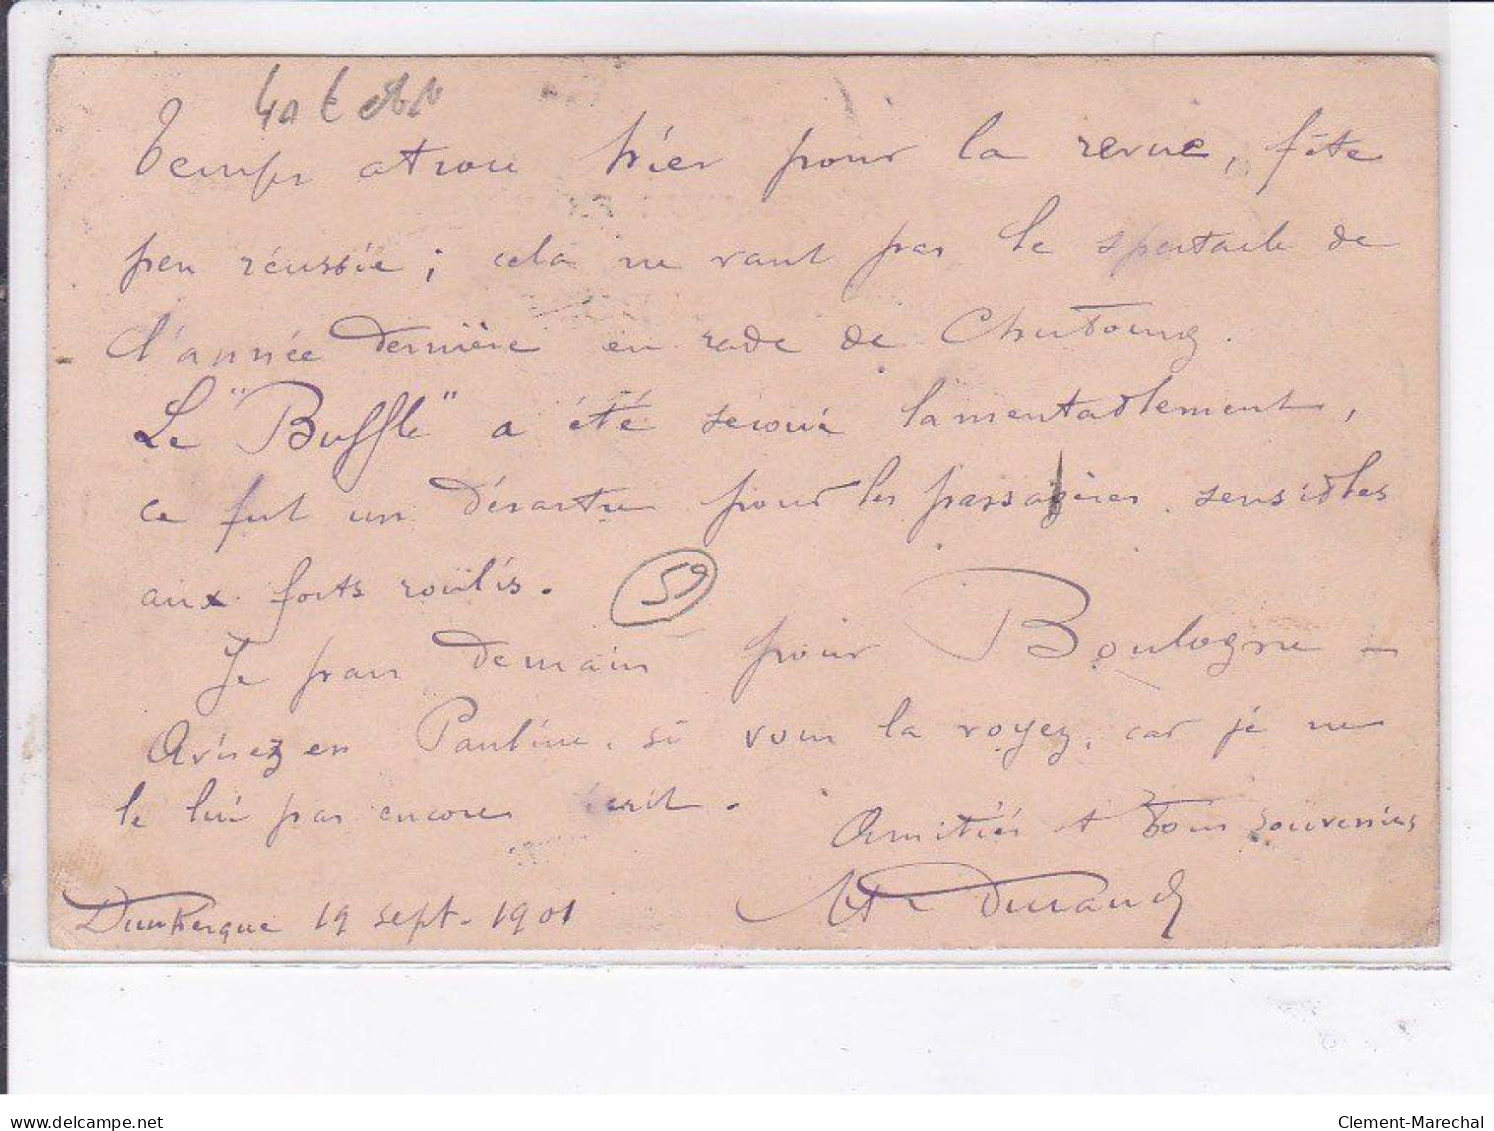 Temps atroce hier pour la revue, fête
peu réussie ; cela ne vaut pas le spectacle de
l'année dernière en rade de Cherbourg.
Le "Buffle" a été secoué lamentablement,
ce fut un désastre pour les passagères sensibles
aux forts roulis.
59
Je pars demain pour Boulogne -
Avisez en Pauline, si vous la voyez, car je ne
le lui pas encore écrit.
Amitiés et bons souvenirs
Dunkerque 19 sept. 1901
Durand
delcampe.net
Clement-Marechal